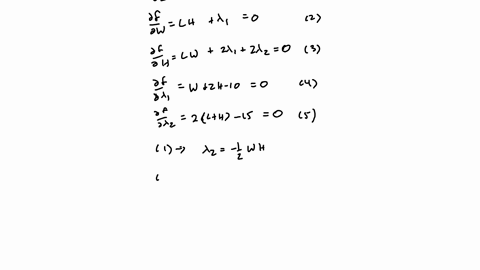 ∂f/∂W = LH + λ₁ = 0 (2)
∂f/∂H = LW + 2λ₁ + 2λ₂ = 0 (3)
∂f/∂λ₁ = W + 2H - 10 = 0 (4)
∂f/∂λ₂ = 2(L+H) - 15 = 0 (5)
(1) → λ₂ = -½ WH
(